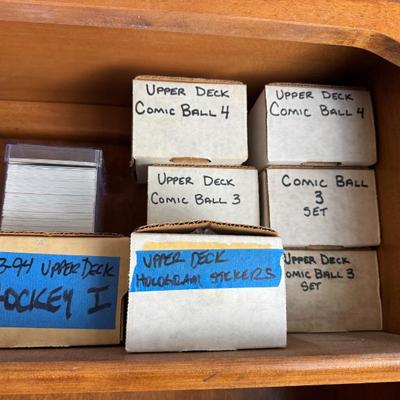 UPPER DECK
COMIC BALL 4
UPPER DECK
COMIC BALL 4
UPPER DECK
COMIC BALL 3
COMIC BALL
3
SET
3-94 UPPER DECK
HOCKEY I
UPPER DECK
HOLOGRAM STICKERS
UPPER DECK
COMIC BALL 3
SET